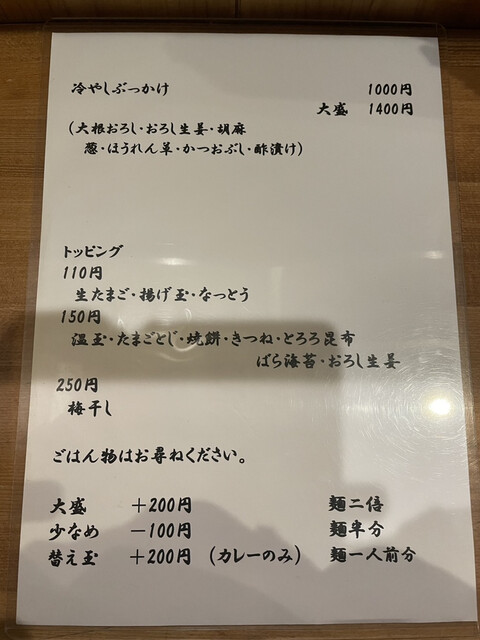 冷やしぶっかけ 1000円
大盛 1400円
(大根おろし・おろし生姜・胡麻
葱・ほうれん草・かつおぶし・酢漬け)
トッピング
110円
生たまご・揚げ玉・なっとう
150円
温玉・たまごとじ・焼餅・きつね・とろろ昆布
ばら海苔・おろし生姜
250円
梅干し
ごはん物はお尋ねください。
大盛 +200円 麺二倍
少なめ -100円 麺半分
替え玉 +200円 (カレーのみ) 麺一人前分